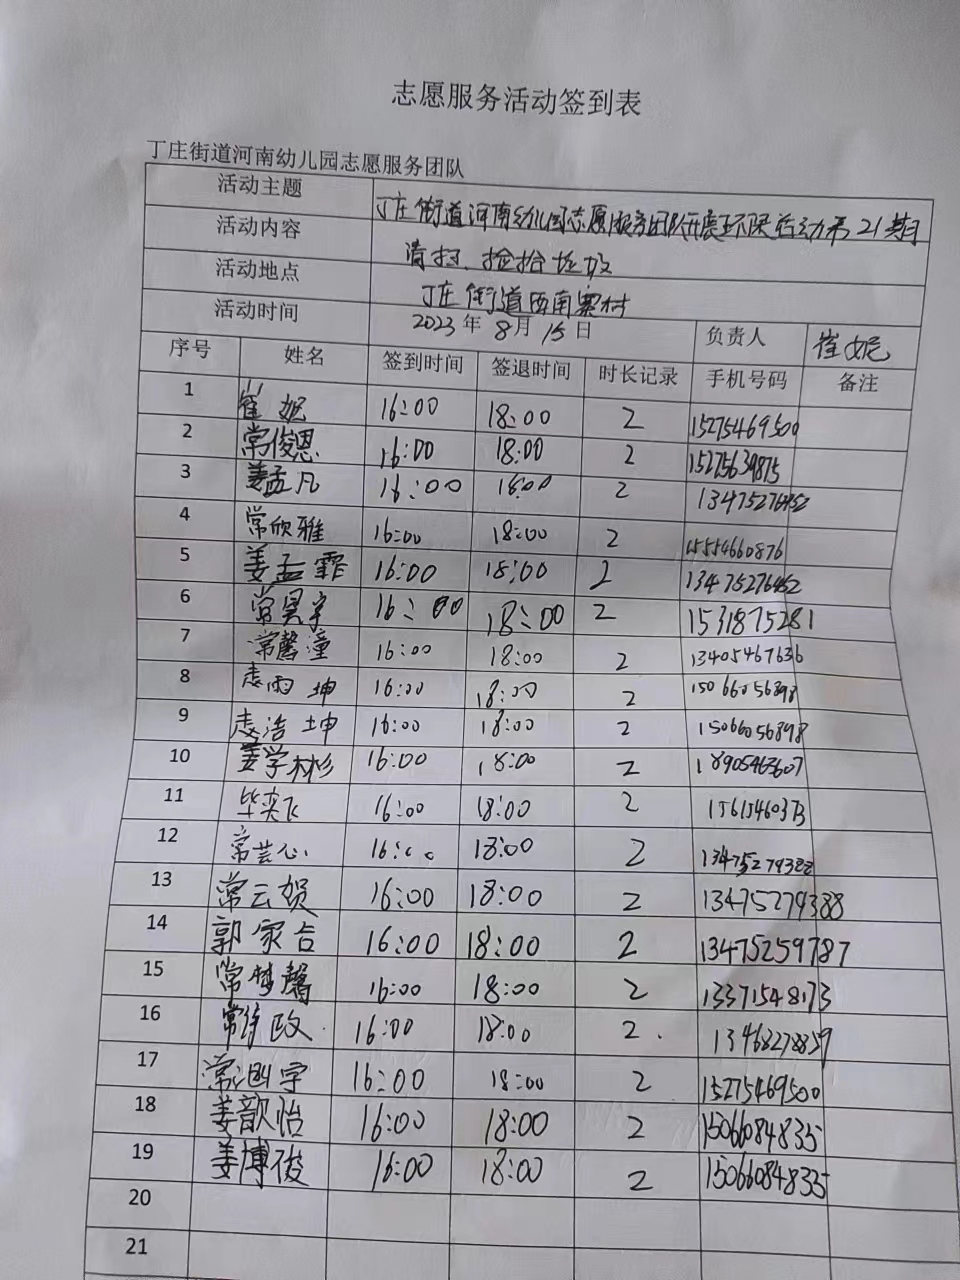 志愿服务活动签到表
丁庄街道河南幼儿园志愿服务团队
活动主题 丁庄街道河南幼儿园志愿服务团队开展环保活动第21期
活动内容 清扫、捡拾垃圾
活动地点 丁庄街道西南寨村
活动时间 2023年8月15日 负责人 崔妮
序号 姓名 签到时间 签退时间 时长记录 手机号码 备注
1 崔妮 16:00 18:00 2 15275469500
2 常俊恩 16:00 18:00 2 15275639875
3 姜孟凡 16:00 18:00 2 13475276452
4 常欣雅 16:00 18:00 2 15554660876
5 姜孟霏 16:00 18:00 2 13475276452
6 常昊宇 16:00 18:00 2 15318775281
7 常馨潼 16:00 18:00 2 13405467636
8 雨坤 16:00 18:00 2 15066056898
9 浩坤 16:00 18:00 2 15066056898
10 姜学彬 16:00 18:00 2 18905463607
11 毕奕飞 16:00 18:00 2
12 常芸心 16:00 18:00 2
13 常云贺 16:00 18:00 2 13475279388
14 郭家合 16:00 18:00 2 13475259787
15 常梦馨 16:00 18:00 2 13371548173
16 常 政 16:00 18:00 2. 13468278859
17 常 宇 16:00 18:00 2 15275469500
18 姜歆怡 16:00 18:00 2 15066084835
19 姜博俊 16:00 18:00 2 15066084835
20
21